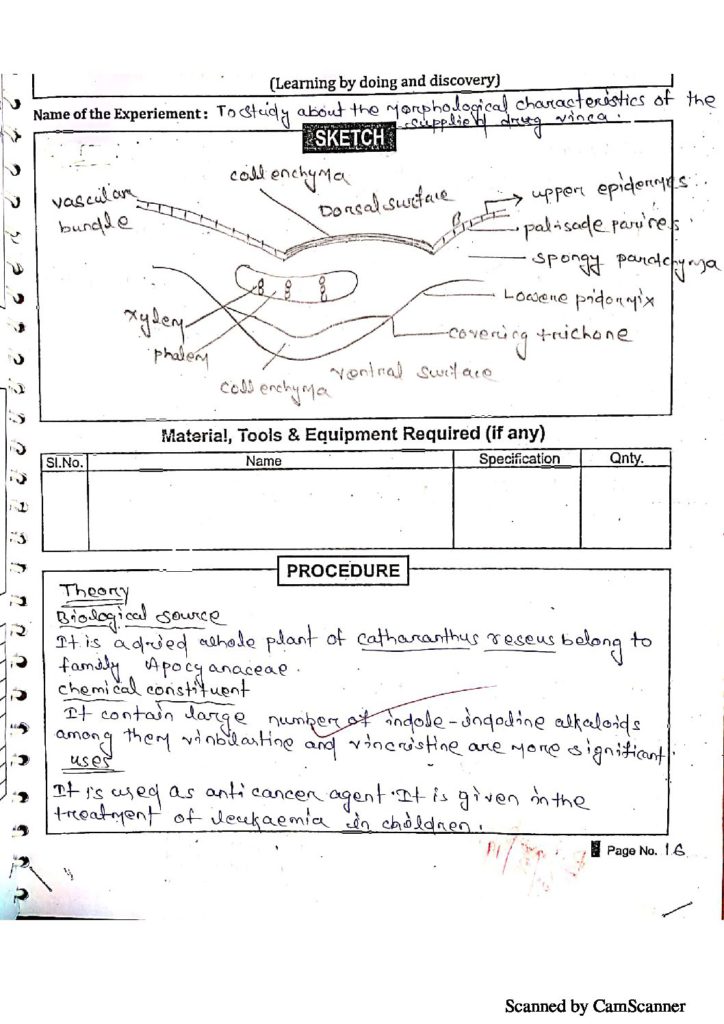 (Learning by doing and discovery)
Name of the Experiement : To study about the Morphological characteristics of the
supplied drug vinca.
SKETCH
collenchyma
vascular
bundle
Dorsal surface
upper epidermis
palisade
spongy paratchyma
xylem
phalem
covering trichone
collenchyma
ventral surface
Material, Tools & Equipment Required (if any)
Sl.No. Name Specification Qnty.
PROCEDURE
Theory
Biological source
It is a dried whole plant of catharanthus reseus belong to
family Apocyanaceae.
chemical constituent
It contain large number of indole-indoline alkaloids
among them vinblastine and vincristine are more significant.
uses
It is used as anti cancer agent. It is given in the
treatment of leukaemia in children.
Page No. 16
Scanned by CamScanner